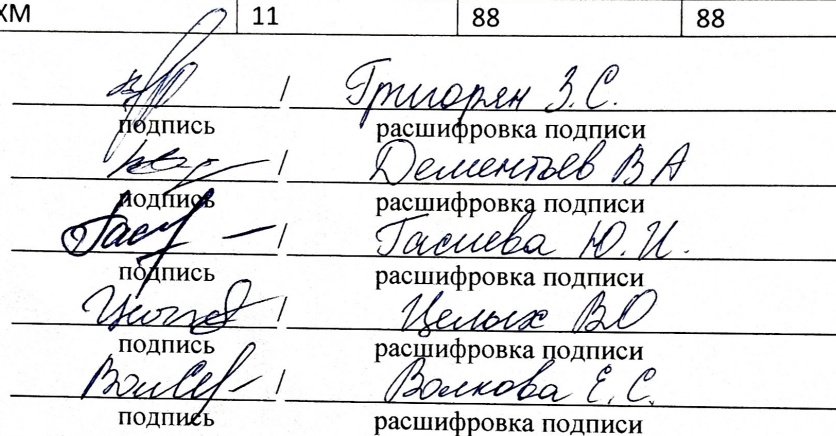 ХМ 11 88 88
/ Григорян З.С.
подпись расшифровка подписи
/ Дементьев В А
подпись расшифровка подписи
/ Гасиева Ю.И.
подпись расшифровка подписи
/ Целых ВО
подпись расшифровка подписи
/ Волкова Е.С.
подпись расшифровка подписи